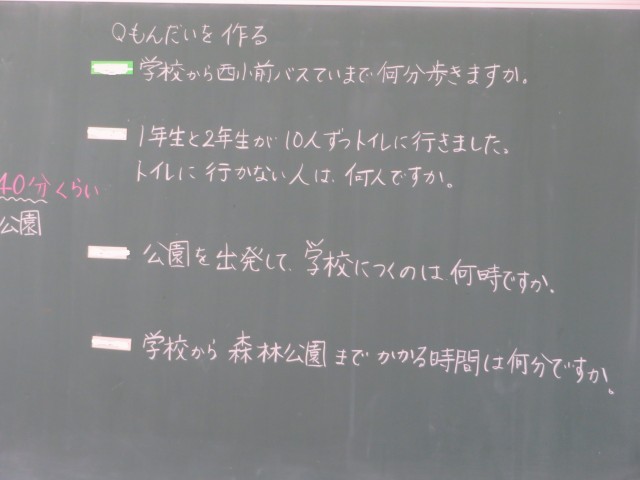 Qもんだいを作る
学校から西小前バスていまで何分歩きますか。
1年生と2年生が10人ずつトイレに行きました。
トイレに行かない人は、何人ですか。
40分くらい
公園
公園を出発して、学校につくのは、何時ですか。
学校から森林公園までかかる時間は何分ですか。